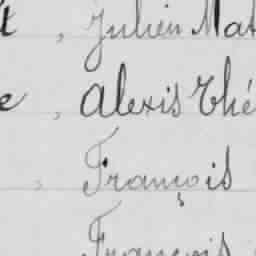 t, Julien Mat
e, Alexis Thé
, François
François